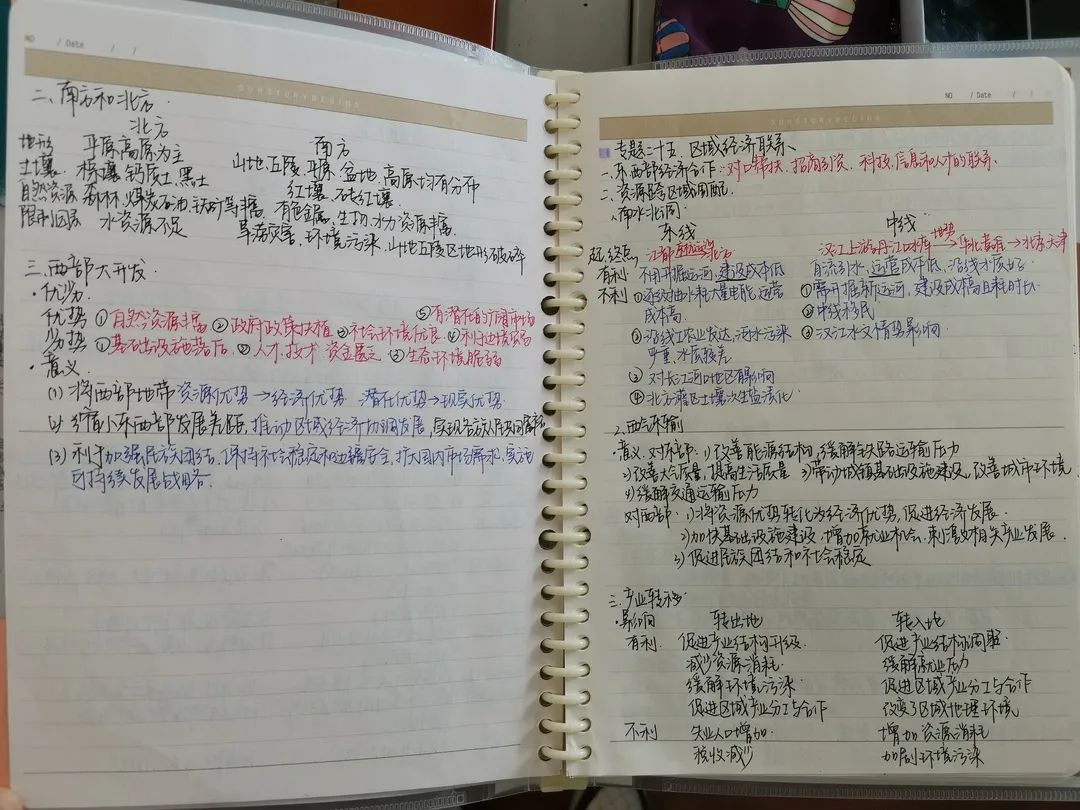 NO / Date / /
OURSTORYBEGINS
二、南方和北方.
北方 南方
地形 平原高原为主 山地、丘陵、平原、盆地、高原均有分布
土壤 棕壤、钙质土、黑土 红壤、砖红壤.
自然资源 森林、煤炭石油、铁矿等丰富. 有色金属、生物、水力资源丰富.
限制因素 水资源不足 旱涝灾害、环境污染、山地丘陵区地形破碎
三、西部大开发.
·优劣.
优势 ①自然资源丰富 ②政府政策扶植 ③社会环境后良 ④利边境贸易 ⑤有潜在的广阔市场
劣势 ①基础设施落后. ②人才、技术、资金匮乏 ③生态环境脆弱
·意义.
(1) 将西部地带资源优势→经济优势 潜在优势→现实优势.
(2) 缩小东西部发展差距, 推动区域经济协调发展, 实现各族人民共同富裕
(3) 利于加强民族团结, 保持社会稳定和边疆安全, 扩大国内市场需求, 实施
可持续发展战略.
NO / Date / /
OURSTORYBEGINS
专题二十五 区域经济联系、
一、东西部经济合作: 对口帮扶、招商引资、科技、信息和人才的联系.
二、资源跨区域调配.
1、南水北调.
东线 中线
起、终点 江都 北方 汉江上游丹江口水库→华北 →北京天津
有利 不用开掘运河, 建设成本低 自流引水, 运营成本低, 沿线水质好
不利 ①逐级抽水耗大量电能, 运营 ①需开掘新运河, 建设成本高且耗时长
成本高. ②中线移民
②沿线工农业发达, 河水污染 ③汉江水文情势影响
严重, 水质较差
③对长江河口地区有影响
④北方灌区土壤次生盐渍化
2、西气东输
·意义. 对东部: 1)改善能源结构, 缓解铁路运输压力
2)改善大气质量, 提高生活质量 3)带动城镇基础设施建设, 改善城市环境
4)缓解交通运输压力
对西部: 1)将资源优势转化为经济优势, 促进经济发展.
2)加快基础设施建设, 增加就业机会, 刺激相关产业发展.
3)促进民族团结和社会稳定
三、产业转移.
·影响 转出地 转入地
有利. 促进产业结构升级. 促进产业结构调整.
减少资源消耗. 缓解就业压力
缓解环境污染. 促进区域产业分工与合作
促进区域产业分工与合作 改变了区域地理环境
不利 失业人口增加. 增加资源消耗
税收减少 加剧环境污染